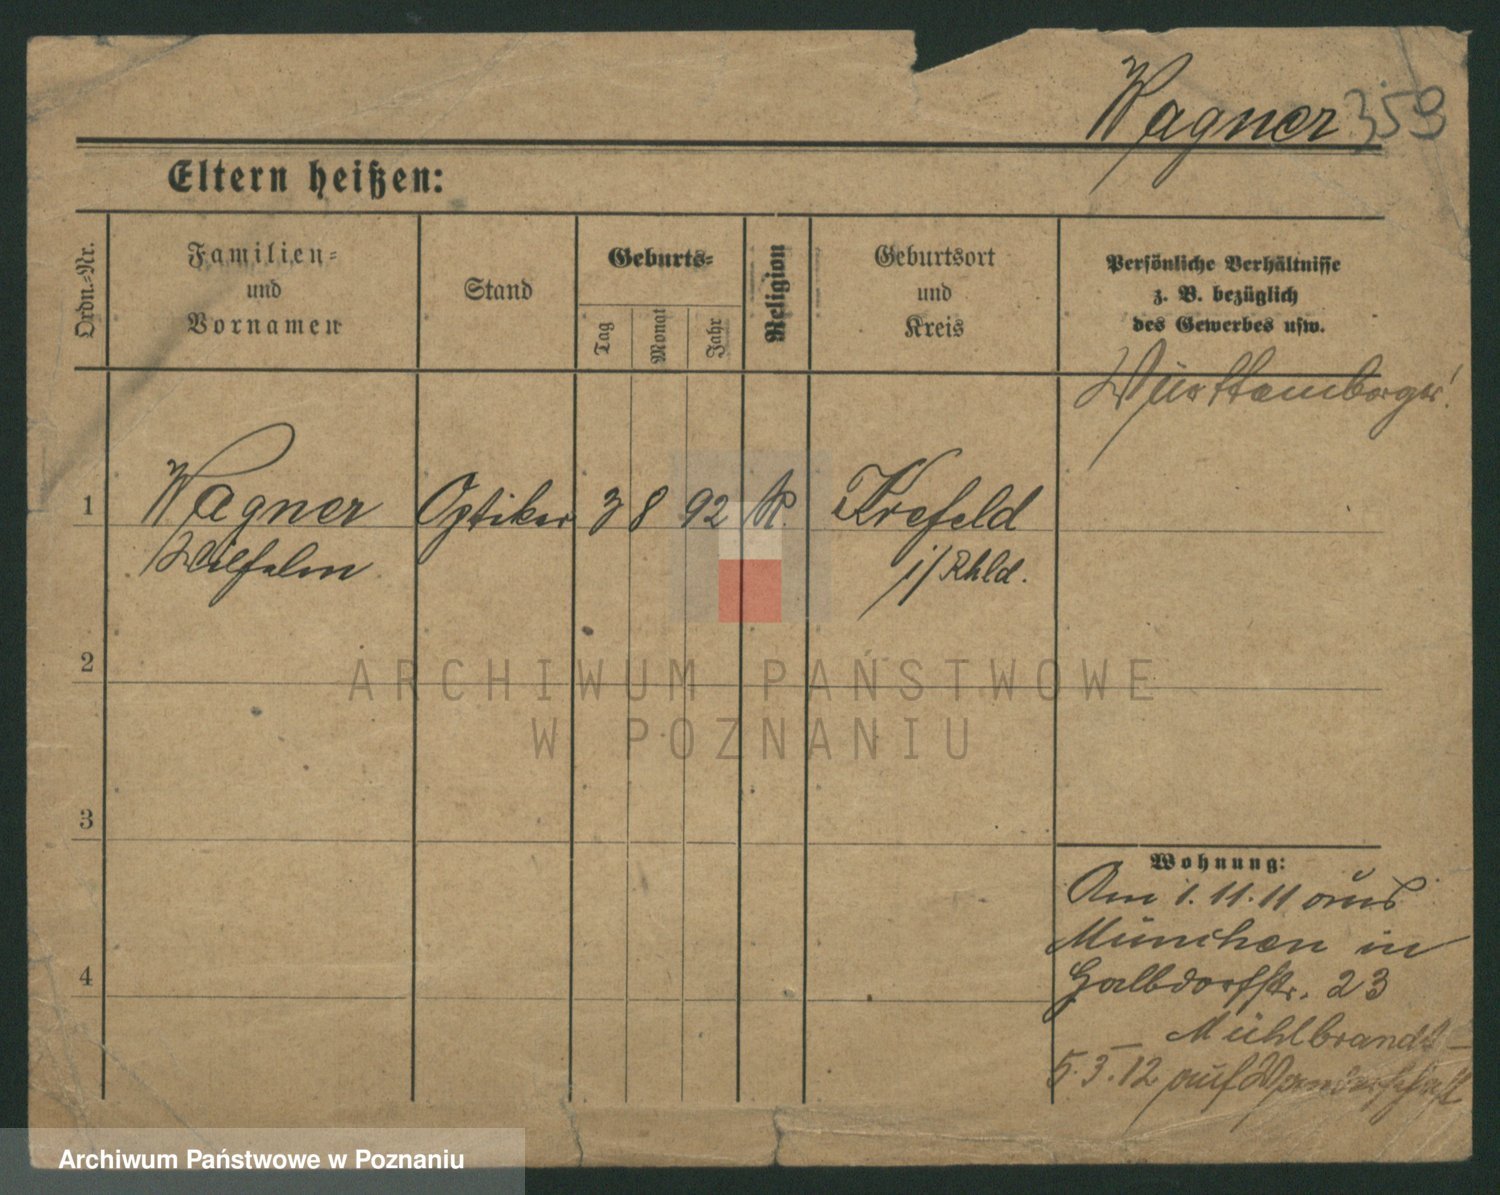 Wagner 359
Eltern heißen:
Ordn.-Nr.
Familien-
und
Vornamen
Stand
Geburts-
Tag
Monat
Jahr
Religion
Geburtsort
und
Kreis
Persönliche Verhältnisse
z. B. bezüglich
des Gewerbes usw.
Württemberger!
1 Wagner Optiker 3 8 92 K. Krefeld
Wilhelm i/Rhld.
2
3
4
Wohnung:
Am 1.11.11 aus
München in
Halbdorfstr. 23
Mühlbrandt
5.3.12 auf Wanderschaft
ARCHIWUM PAŃSTWOWE
W POZNANIU
Archiwum Państwowe w Poznaniu